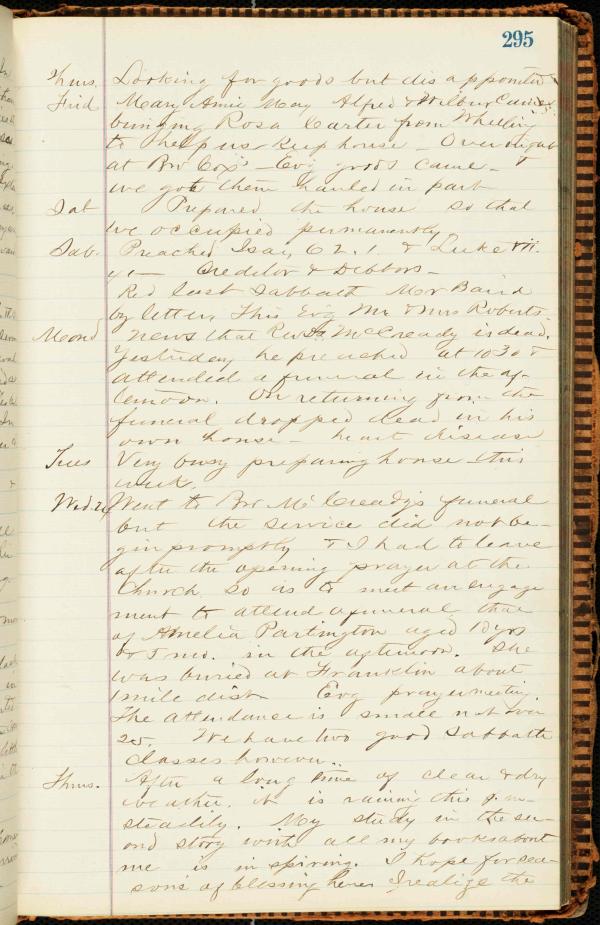 295
Thurs. Looking for goods but disappointed
Frid Mary Amie May Alfred & Wilbur
bringing Rosa Carter from Wheeling
to help us keep house – Over night
at Bro Cox's – Evg goods came – &
we got them hauled in part
Sat Prepared the house so that
we occupied permanently
Sab. Preached Isai, 62.1 & Luke VII.
41 — Creditor & Debtors –
Rec last Sabbath Mer Baird
by letter, This Evg Mr & Mrs Roberts
Mond News that Rev McCready is dead.
Yesterday he preached at 1030 &
attended a funeral in the af-
ternoon. On returning from the
funeral dropped dead in his
own house – heart disease
Tues Very busy preparing house this
week,
Wed. 24 Went to Bro McCready's funeral
but the service did not be-
gin promptly & I had to leave
after the opening prayer at the
Church so as to meet an engage
ment to attend a funeral that
of Amelia Partington aged 18 yrs
& 5 mo. in the afternoon. She
was buried at Franklin about
1 mile dist Evg prayermeeting.
The attendance is small not over
25. We have two good Sabbath
Classes however..
Thurs. After a long time of clear & dry
weather, it is raining this p.m–
steadily. My study in the sec-
ond story with all my books about
me is inspiring. I hope for sea-
sons of blessing here I realize the